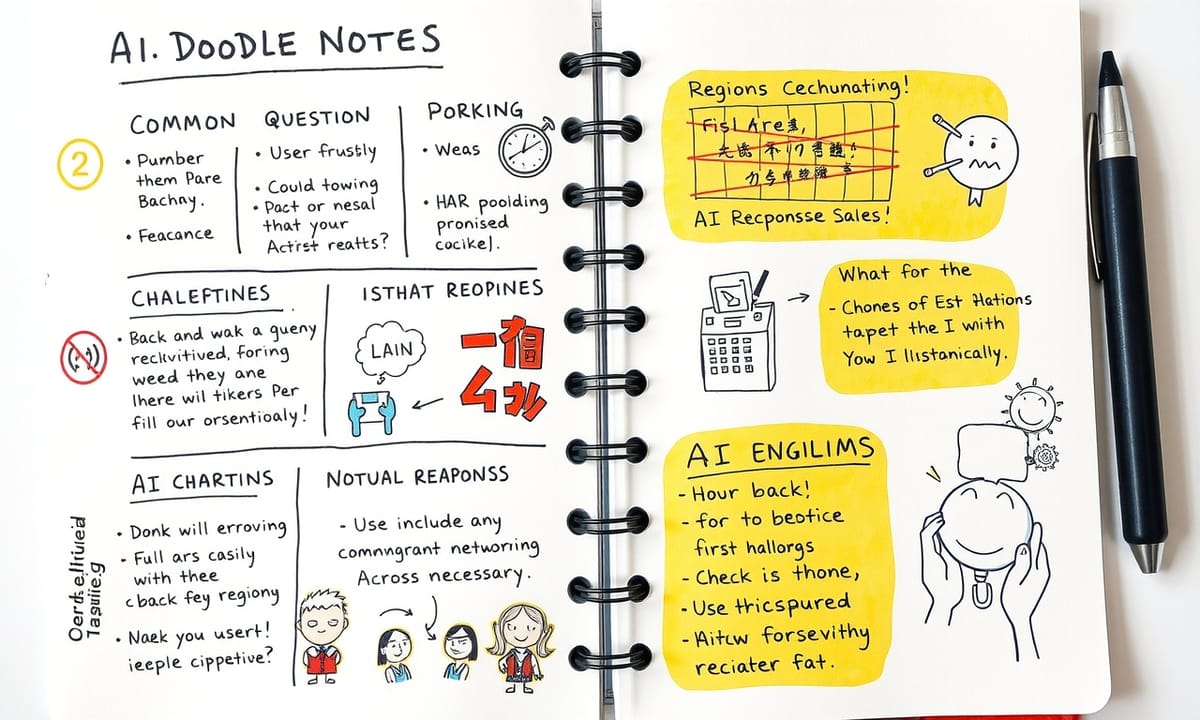 AI. DOODLE NOTES
2
COMMON
• Pumber
them Pare
Bachay.
• Feacance
QUESTION
• User frustly
• Could towing
• Pact or nesal
that your
Actirst reatts?
PORKING
• Weas
• HAR poolding
pronised
cocikel).
CHALEFTINES
• Back and wak a gueny
recluvitived, foring
weed they ane
lhere wil tikers Per
fill our orsentioaly!
ISTHAT REOPINES
LAIN
AI CHARTINS
• Donk will erroving
- Full ars casily
with thee
cback fey regiony
• Naek you usert!
ieeple cippetive?
NOTUAL REAPONSS
- Use include any
comnngrant networring
Across necessary.
Regions Cechunating!
AI Recponsse Sales!
What for the
- Chones of Est Hations
tapet the I with
Yow I llistanically.
AI ENGILIMS
- Hour back!
- for to beotice
first hallorgs
- Check is thone,
- Use thicspured
- Aitcw forsevithy
reciater fat.